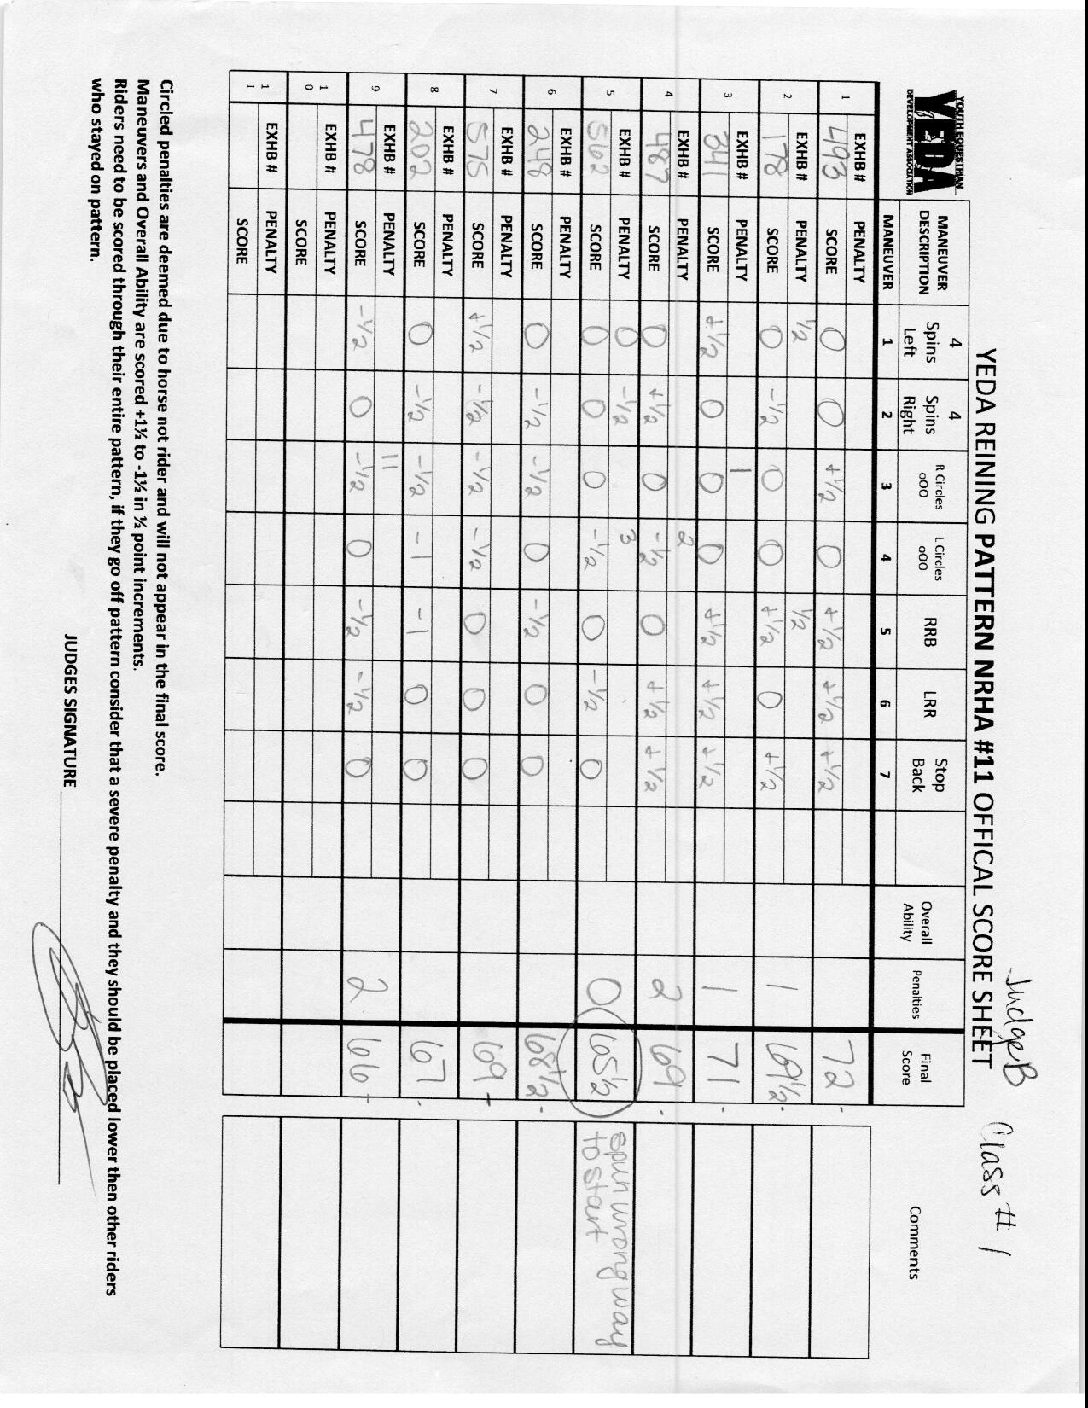 Judge B Class # 1
YOUTH EQUESTRIAN
YEDA
DEVELOPMENT ASSOCIATION
YEDA REINING PATTERN NRHA #11 OFFICAL SCORE SHEET
MANEUVER DESCRIPTION 4 Spins Left 4 Spins Right R Circles oOO L Circles oOO RRB LRR Stop Back Overall Ability Penalties Final Score Comments
MANEUVER 1 2 3 4 5 6 7
1 EXHB # PENALTY
493 SCORE 0 0 +1/2 0 +1/2 +1/2 +1/2 72
2 EXHB # PENALTY 1/2 1/2
178 SCORE 0 -1/2 0 0 +1/2 0 +1/2 1 69 1/2
3 EXHB # PENALTY 1
341 SCORE +1/2 0 0 0 +1/2 +1/2 +1/2 1 71
4 EXHB # PENALTY 2
487 SCORE 0 +1/2 0 -1/2 0 +1/2 +1/2 2 69
5 EXHB # PENALTY 0 -1/2 3
562 SCORE 0 0 0 -1/2 0 -1/2 0 0 65 1/2 spun wrong way
to start
6 EXHB # PENALTY
248 SCORE 0 -1/2 -1/2 0 -1/2 0 0 68 1/2
7 EXHB # PENALTY
575 SCORE +1/2 -1/2 -1/2 -1/2 0 0 0 69
8 EXHB # PENALTY
202 SCORE 0 -1/2 -1/2 -1 -1 0 0 67
9 EXHB # PENALTY 11
478 SCORE -1/2 0 -1/2 0 -1/2 -1/2 0 2 66
10 EXHB # PENALTY
SCORE
11 EXHB # PENALTY
SCORE
Circled penalties are deemed due to horse not rider and will not appear in the final score.
Maneuvers and Overall Ability are scored +1½ to -1½ in ½ point increments.
Riders need to be scored through their entire pattern, if they go off pattern consider that a severe penalty and they should be placed lower then other riders
who stayed on pattern.
JUDGES SIGNATURE